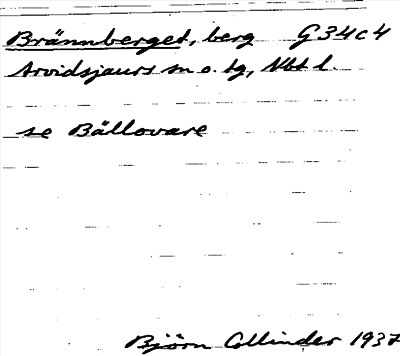 Brännberget, berg G34c4
Arvidsjaurs sn o. tg, Nbt l.
se Bällovare
Björn Collinder 1937